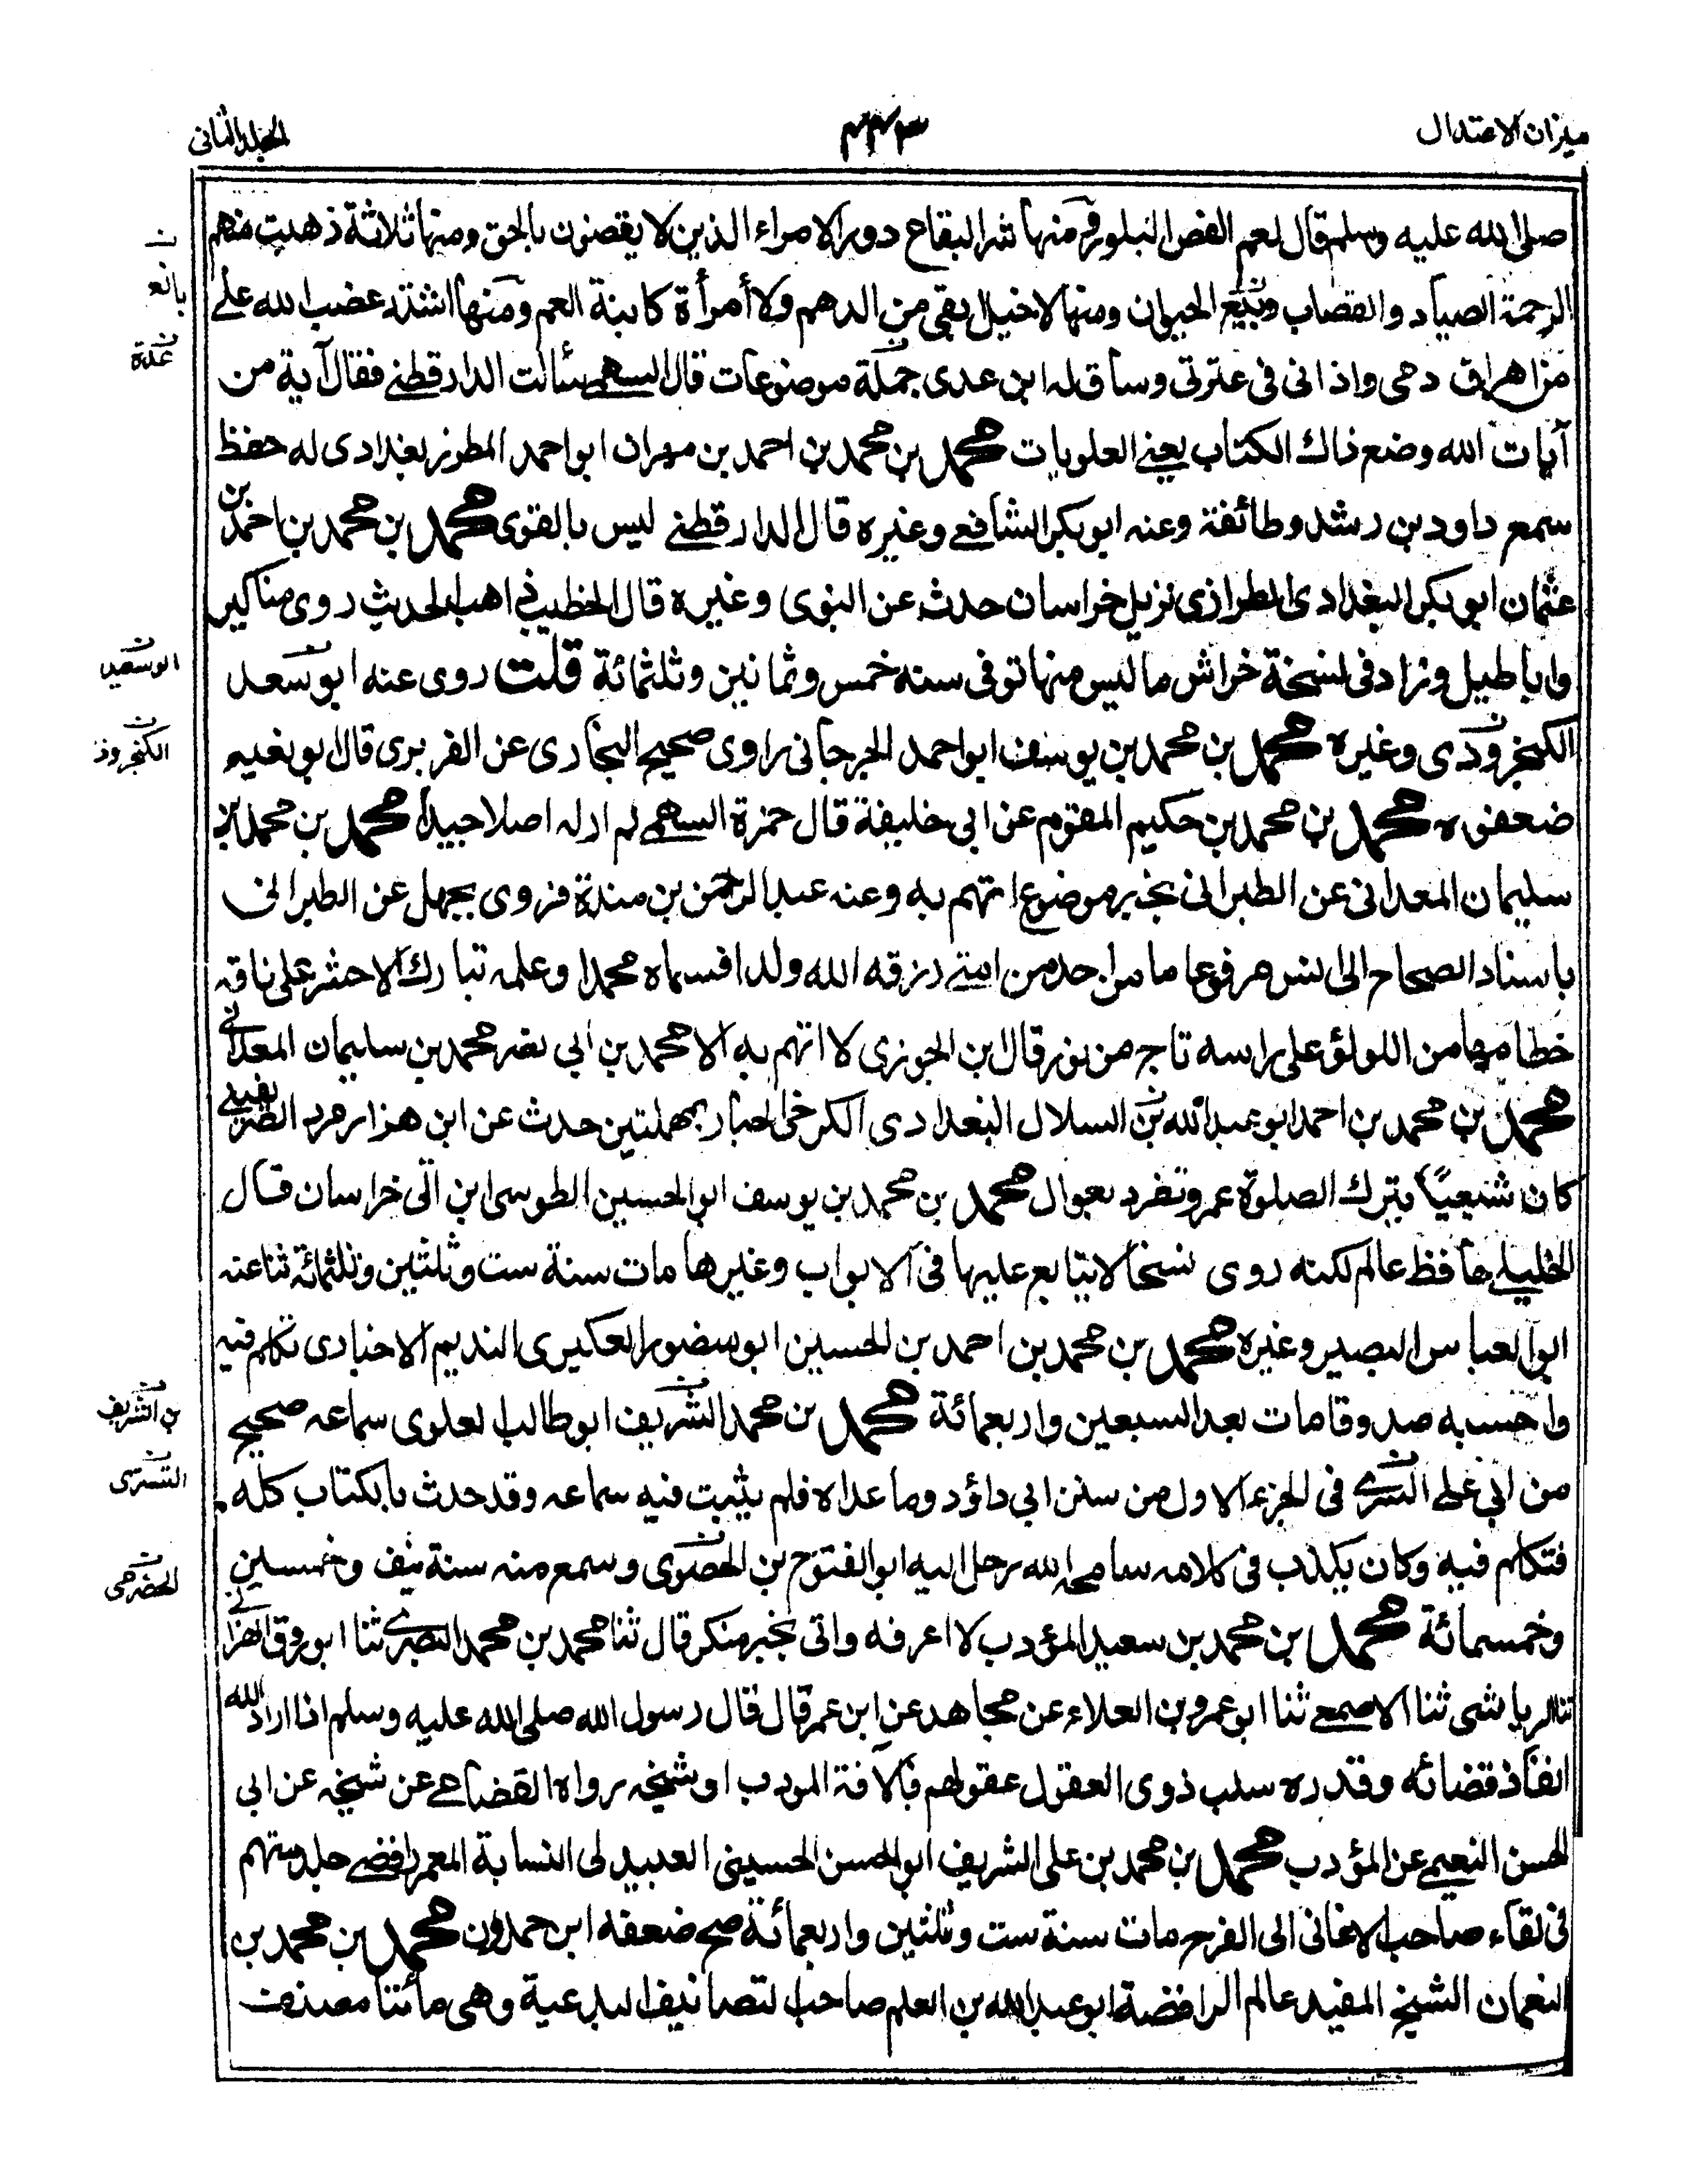 ميزان الاعتدال
٤٤٣
المجلد الثانى
صلى الله عليه وسلم قال نعم الفص البلور ومنها شر البقاع دور الامراء الذين لا يقضون بالحق ومنها ثلاثة ذهبت منهم
الرحمة الصياد والقصاب وبيع الحيوان ومنها لا خيل بقى من الدهم ولا أمرأة كابنة العم ومنها اشتد غضب الله على
من اهراق دمى واذانى فى عترتى وساق له ابن عدى جملة موضوعات قال السهمى سألت الدارقطنى فقال آية من
آيات الله وضع ذاك الكتاب يعنى العلويات محمد بن محمد بن احمد بن مهران ابو احمد المطرز بغدادى له حفظ
سمع داود بن رشد وطائفة وعنه ابو بكر الشافعى وغيره قال الدارقطنى ليس بالقوى محمد بن محمد بن احمد بن
عثمان ابو بكر البغدادى الطرازى نزيل خراسان حدث عن البغوى وغيره قال الخطيب ذاهب الحديث روى مناكير
واباطيل وزاد فى نسخة خراش ما ليس منها توفى سنه خمس وثمانين وثلثمائة قلت روى عنه ابو سعد
الكنجرودى وغيره محمد بن محمد بن يوسف ابو احمد الجرجانى راوى صحيح البخارى عن الفربرى قال ابو نعيم
ضعفوه محمد بن محمد بن حكيم المقوم عن ابى خليفة قال حمزة السهمى لم ار له اصلا جيدا محمد بن محمد بن
سليمان المعدانى عن الطبرانى بخبر موضوع اتهم به وعنه عبد الرحمن بن مندة فروى بجهل عن الطبرانى
باسناد الصحاح الى انس مرفوعا ما من احد من امتى رزقه الله ولدا فسماه محمدا وعلمه تبارك الا حشر على ناقة
خطامها من اللؤلؤ على راسه تاج من نور قال ابن الجوزى لا اتهم به الا محمد بن ابى نصر محمد بن سليمان المعدانى
محمد بن محمد بن احمد ابو عبد الله بن السلال البغدادى الكرخى الحبار بمهملتين حدث عن ابن هزارمرد الصريفينى
كان شيعيا يترك الصلوة عمر وتفرد بعوال محمد بن محمد بن يوسف ابو الحسين الطوسى ابن اتى خراسان قال
الخليلى حافظ عالم لكنه روى نسخا لا يتابع عليها فى الابواب وغيرها مات سنة ست وثلثين وثلثمائة ثنا عنه
ابو العباس البصير وغيره محمد بن محمد بن احمد بن الحسين ابو منصور العكبرى النديم الاخبارى تكلم فيه
واحسبه صدوقا مات بعد السبعين واربعمائة محمد بن محمد الشريف ابو طالب العلوى سماعه صحيح
من ابى على التسترى فى الجزء الاول من سنن ابى داؤد وما عداه فلم يثبت فيه سماعه وقد حدث بالكتاب كله
فتكلم فيه وكان يكذب فى كلامه سامحه الله رحل اليه ابو الفتوح بن الحصرى وسمع منه سنة نيف وخمسين
وخمسمائة محمد بن محمد بن سعيد المؤدب لا اعرفه واتى بخبر منكر قال ثنا محمد بن محمد البصرى ثنا ابو روق الهزانى
ثنا الرياشى ثنا الاصمعى ثنا ابو عمرو بن العلاء عن مجاهد عن ابن عمر قال قال رسول الله صلى الله عليه وسلم اذا اراد الله
انفاذ قضائه وقدره سلب ذوى العقول عقولهم فالآفة المودب او شيخه رواه القضاعى عن شيخه عن ابى
الحسن النعيمى عن المؤدب محمد بن محمد بن على الشريف ابو الحسن الحسينى العبيدلى النسابة المعمر رافضى جلد متهم
فى لقاء صاحب الاغانى ابى الفرج مات سنة ست وثلثين واربعمائة صح ضعفه ابن حمدون محمد بن محمد بن
النعمان الشيخ المفيد عالم الرافضة ابو عبد الله بن المعلم صاحب التصانيف البدعية وهى مائتا مصنف
ن
بائع
ن
عدة
ن
ابو سعيد
ن
الكنجروذ
ن
بن الشريف
ن
التسترى
ن
الحضرمى